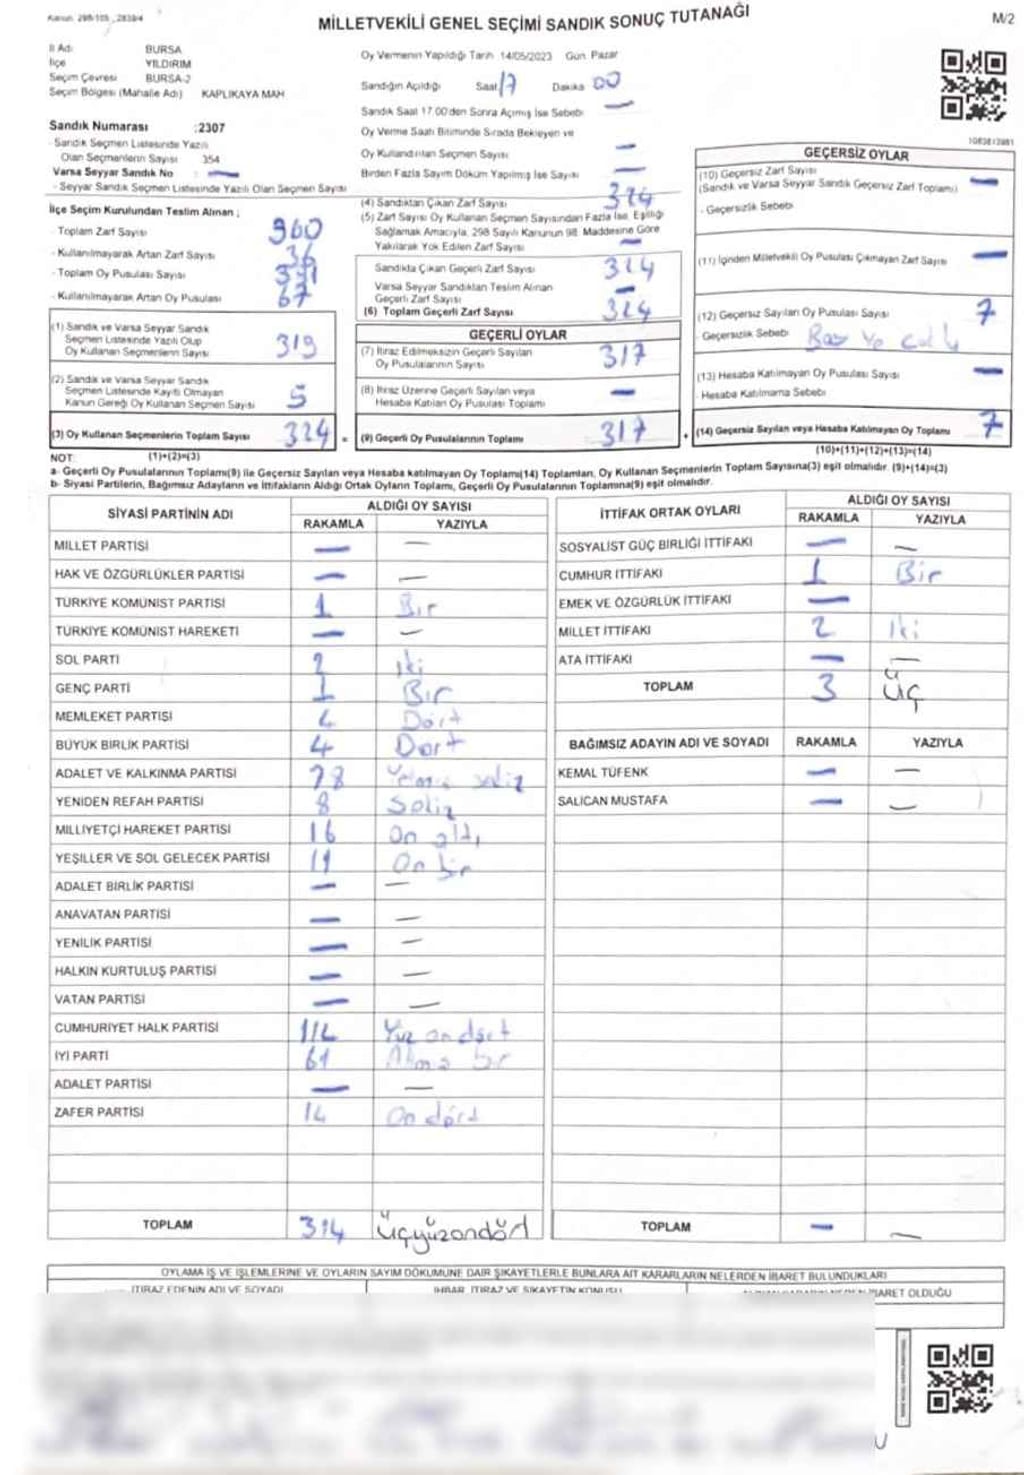 Kanun: 298/105, 2839/4
MİLLETVEKİLİ GENEL SEÇİMİ SANDIK SONUÇ TUTANAĞI
M/2
İl Adı BURSA
İlçe YILDIRIM
Seçim Çevresi BURSA-2
Seçim Bölgesi (Mahalle Adı) KAPLIKAYA MAH
Sandık Numarası :2307
- Sandık Seçmen Listesinde Yazılı
Olan Seçmenlerin Sayısı 354
Varsa Seyyar Sandık No : —
- Seyyar Sandık Seçmen Listesinde Yazılı Olan Seçmen Sayısı
İlçe Seçim Kurulundan Teslim Alınan ;
- Toplam Zarf Sayısı 360
- Kullanılmayarak Artan Zarf Sayısı 36
- Toplam Oy Pusulası Sayısı
- Kullanılmayarak Artan Oy Pusulası 67
(1) Sandık ve Varsa Seyyar Sandık
Seçmen Listesinde Yazılı Olup
Oy Kullanan Seçmenlerin Sayısı 319
(2) Sandık ve Varsa Seyyar Sandık
Seçmen Listesinde Kayıtlı Olmayan
Kanun Gereği Oy Kullanan Seçmen Sayısı 5
(3) Oy Kullanan Seçmenlerin Toplam Sayısı 324 =
(1)+(2)=(3)
Oy Vermenin Yapıldığı Tarih 14/05/2023 Gün: Pazar
Sandığın Açıldığı Saat 17 Dakika 00
Sandık Saat 17.00'den Sonra Açılmış İse Sebebi —
Oy Verme Saati Bitiminde Sırada Bekleyen ve
Oy Kullandırılan Seçmen Sayısı —
Birden Fazla Sayım Döküm Yapılmış İse Sayısı —
(4) Sandıktan Çıkan Zarf Sayısı 324
(5) Zarf Sayısı Oy Kullanan Seçmen Sayısından Fazla İse, Eşitliği
Sağlamak Amacıyla, 298 Sayılı Kanunun 98. Maddesine Göre
Yakılarak Yok Edilen Zarf Sayısı —
Sandıkta Çıkan Geçerli Zarf Sayısı 324
Varsa Seyyar Sandıktan Teslim Alınan
Geçerli Zarf Sayısı —
(6) Toplam Geçerli Zarf Sayısı 324
GEÇERLİ OYLAR
(7) İtiraz Edilmeksizin Geçerli Sayılan
Oy Pusulalarının Sayısı 317
(8) İtiraz Üzerine Geçerli Sayılan veya
Hesaba Katılan Oy Pusulası Toplamı —
(9) Geçerli Oy Pusulalarının Toplamı 317 +
GEÇERSİZ OYLAR
(10) Geçersiz Zarf Sayısı
(Sandık ve Varsa Seyyar Sandık Geçersiz Zarf Toplamı) —
- Geçersizlik Sebebi
(11) İçinden Milletvekili Oy Pusulası Çıkmayan Zarf Sayısı —
(12) Geçersiz Sayılan Oy Pusulası Sayısı 7
Geçersizlik Sebebi
(13) Hesaba Katılmayan Oy Pusulası Sayısı —
- Hesaba Katılmama Sebebi
(14) Geçersiz Sayılan veya Hesaba Katılmayan Oy Toplamı 7
(10)+(11)+(12)+(13)=(14)
NOT:
a- Geçerli Oy Pusulalarının Toplamı(9) ile Geçersiz Sayılan veya Hesaba katılmayan Oy Toplamı(14) Toplamları, Oy Kullanan Seçmenlerin Toplam Sayısına(3) eşit olmalıdır. (9)+(14)=(3)
b- Siyasi Partilerin, Bağımsız Adayların ve İttifakların Aldığı Ortak Oyların Toplamı, Geçerli Oy Pusulalarının Toplamına(9) eşit olmalıdır.
SİYASİ PARTİNİN ADI ALDIĞI OY SAYISI
RAKAMLA YAZIYLA
MİLLET PARTİSİ — —
HAK VE ÖZGÜRLÜKLER PARTİSİ — —
TÜRKİYE KOMÜNİST PARTİSİ 1 Bir
TÜRKİYE KOMÜNİST HAREKETİ — —
SOL PARTİ 2 İki
GENÇ PARTİ 1 Bir
MEMLEKET PARTİSİ 4 Dört
BÜYÜK BİRLİK PARTİSİ 4 Dört
ADALET VE KALKINMA PARTİSİ 78 Yetmiş sekiz
YENİDEN REFAH PARTİSİ 8 Sekiz
MİLLİYETÇİ HAREKET PARTİSİ 16 On altı
YEŞİLLER VE SOL GELECEK PARTİSİ 11 On bir
ADALET BİRLİK PARTİSİ — —
ANAVATAN PARTİSİ — —
YENİLİK PARTİSİ — —
HALKIN KURTULUŞ PARTİSİ — —
VATAN PARTİSİ — —
CUMHURİYET HALK PARTİSİ 114 Yüz on dört
İYİ PARTİ 61 Altmış bir
ADALET PARTİSİ — —
ZAFER PARTİSİ 14 On dört
TOPLAM 314 Üçyüzondört
İTTİFAK ORTAK OYLARI ALDIĞI OY SAYISI
RAKAMLA YAZIYLA
SOSYALİST GÜÇ BİRLİĞİ İTTİFAKI — —
CUMHUR İTTİFAKI 1 Bir
EMEK VE ÖZGÜRLÜK İTTİFAKI —
MİLLET İTTİFAKI 2 İki
ATA İTTİFAKI — —
TOPLAM 3 Üç
BAĞIMSIZ ADAYIN ADI VE SOYADI RAKAMLA YAZIYLA
KEMAL TÜFENK — —
SALİCAN MUSTAFA — —
TOPLAM — —
OYLAMA İŞ VE İŞLEMLERİNE VE OYLARIN SAYIM DÖKÜMÜNE DAİR ŞİKAYETLERLE BUNLARA AİT KARARLARIN NELERDEN İBARET BULUNDUKLARI
İTİRAZ EDENİN ADI VE SOYADI İHBAR, İTİRAZ VE ŞİKAYETİN KONUSU